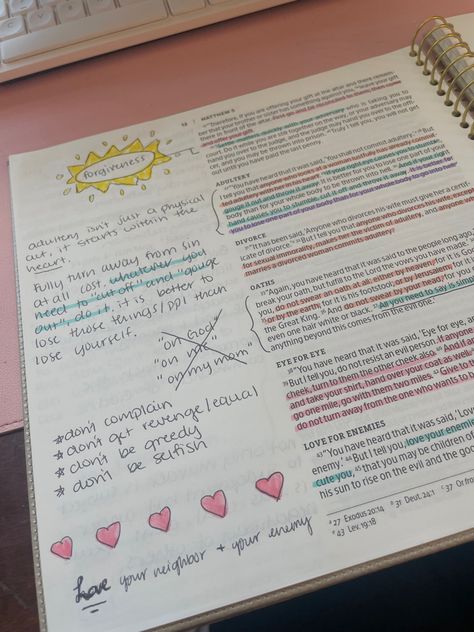 forgiveness
adultery isn't just a physical
act, it starts within the
heart.
Fully turn away from sin
at all cost. whatever you
need to "cut off" and "gouge
out", do it. it is better to
lose those things/ppl than
lose yourself.
"on God"
"on me"
"on my mom"
* don't complain
* don't get revenge/equal
* don't be greedy
* don't be selfish
Love your neighbor + your enemy
MATTHEW 5
"Therefore, if you are offering your gift at the altar and there remem-
ber that your brother or sister has something against you,
First go and be reconciled to them; then come
and offer your gift.
matters quickly with your adversary who is taking you to
hand you over to the judge, and the judge may hand you over to the
out until you have paid the last penny.
ADULTERY
"You have heard that it was said, 'You shall not commit adultery.' But
I tell you that anyone who looks at a woman lustfully has already commit-
ted adultery with her in his heart.
gouge it out and throw it away.
body than for your whole body to be thrown into hell.
hand causes you to stumble, cut it off and throw it away. It is better for
you to lose one part of your body than for your whole body to go into hell.
DIVORCE
"It has been said, 'Anyone who divorces his wife must give her a certif-
icate of divorce.' But I tell you that anyone who divorces his wife, except
for sexual immorality, makes her the victim of adultery, and anyone
marries a divorced woman commits adultery.
OATHS
"Again, you have heard that it was said to the people long ago,
break your oath, but fulfill to the Lord the vows you have made.'
you, do not swear an oath at all: either by heaven, for it is God's
or by the earth, for it is his footstool; or by Jerusalem, for it is
the Great King. And do not swear by your head, for you
even one hair white or black. All you need to say is simply
anything beyond this comes from the evil one.
EYE FOR EYE
"You have heard that it was said, 'Eye for eye, and
But I tell you, do not resist an evil person. If anyone
cheek, turn to them the other cheek also. And if
and take your shirt, hand over your coat as well.
go one mile, go with them two miles. Give to the
do not turn away from the one who wants to b
LOVE FOR ENEMIES
"You have heard that it was said, 'Love
enemy.' But I tell you, love your enemies
cute you, that you may be children of
his sun to rise on the evil and the good
27 Exodus 20:14 31 Deut. 24:1 37 Or fro
43 Lev. 19:18